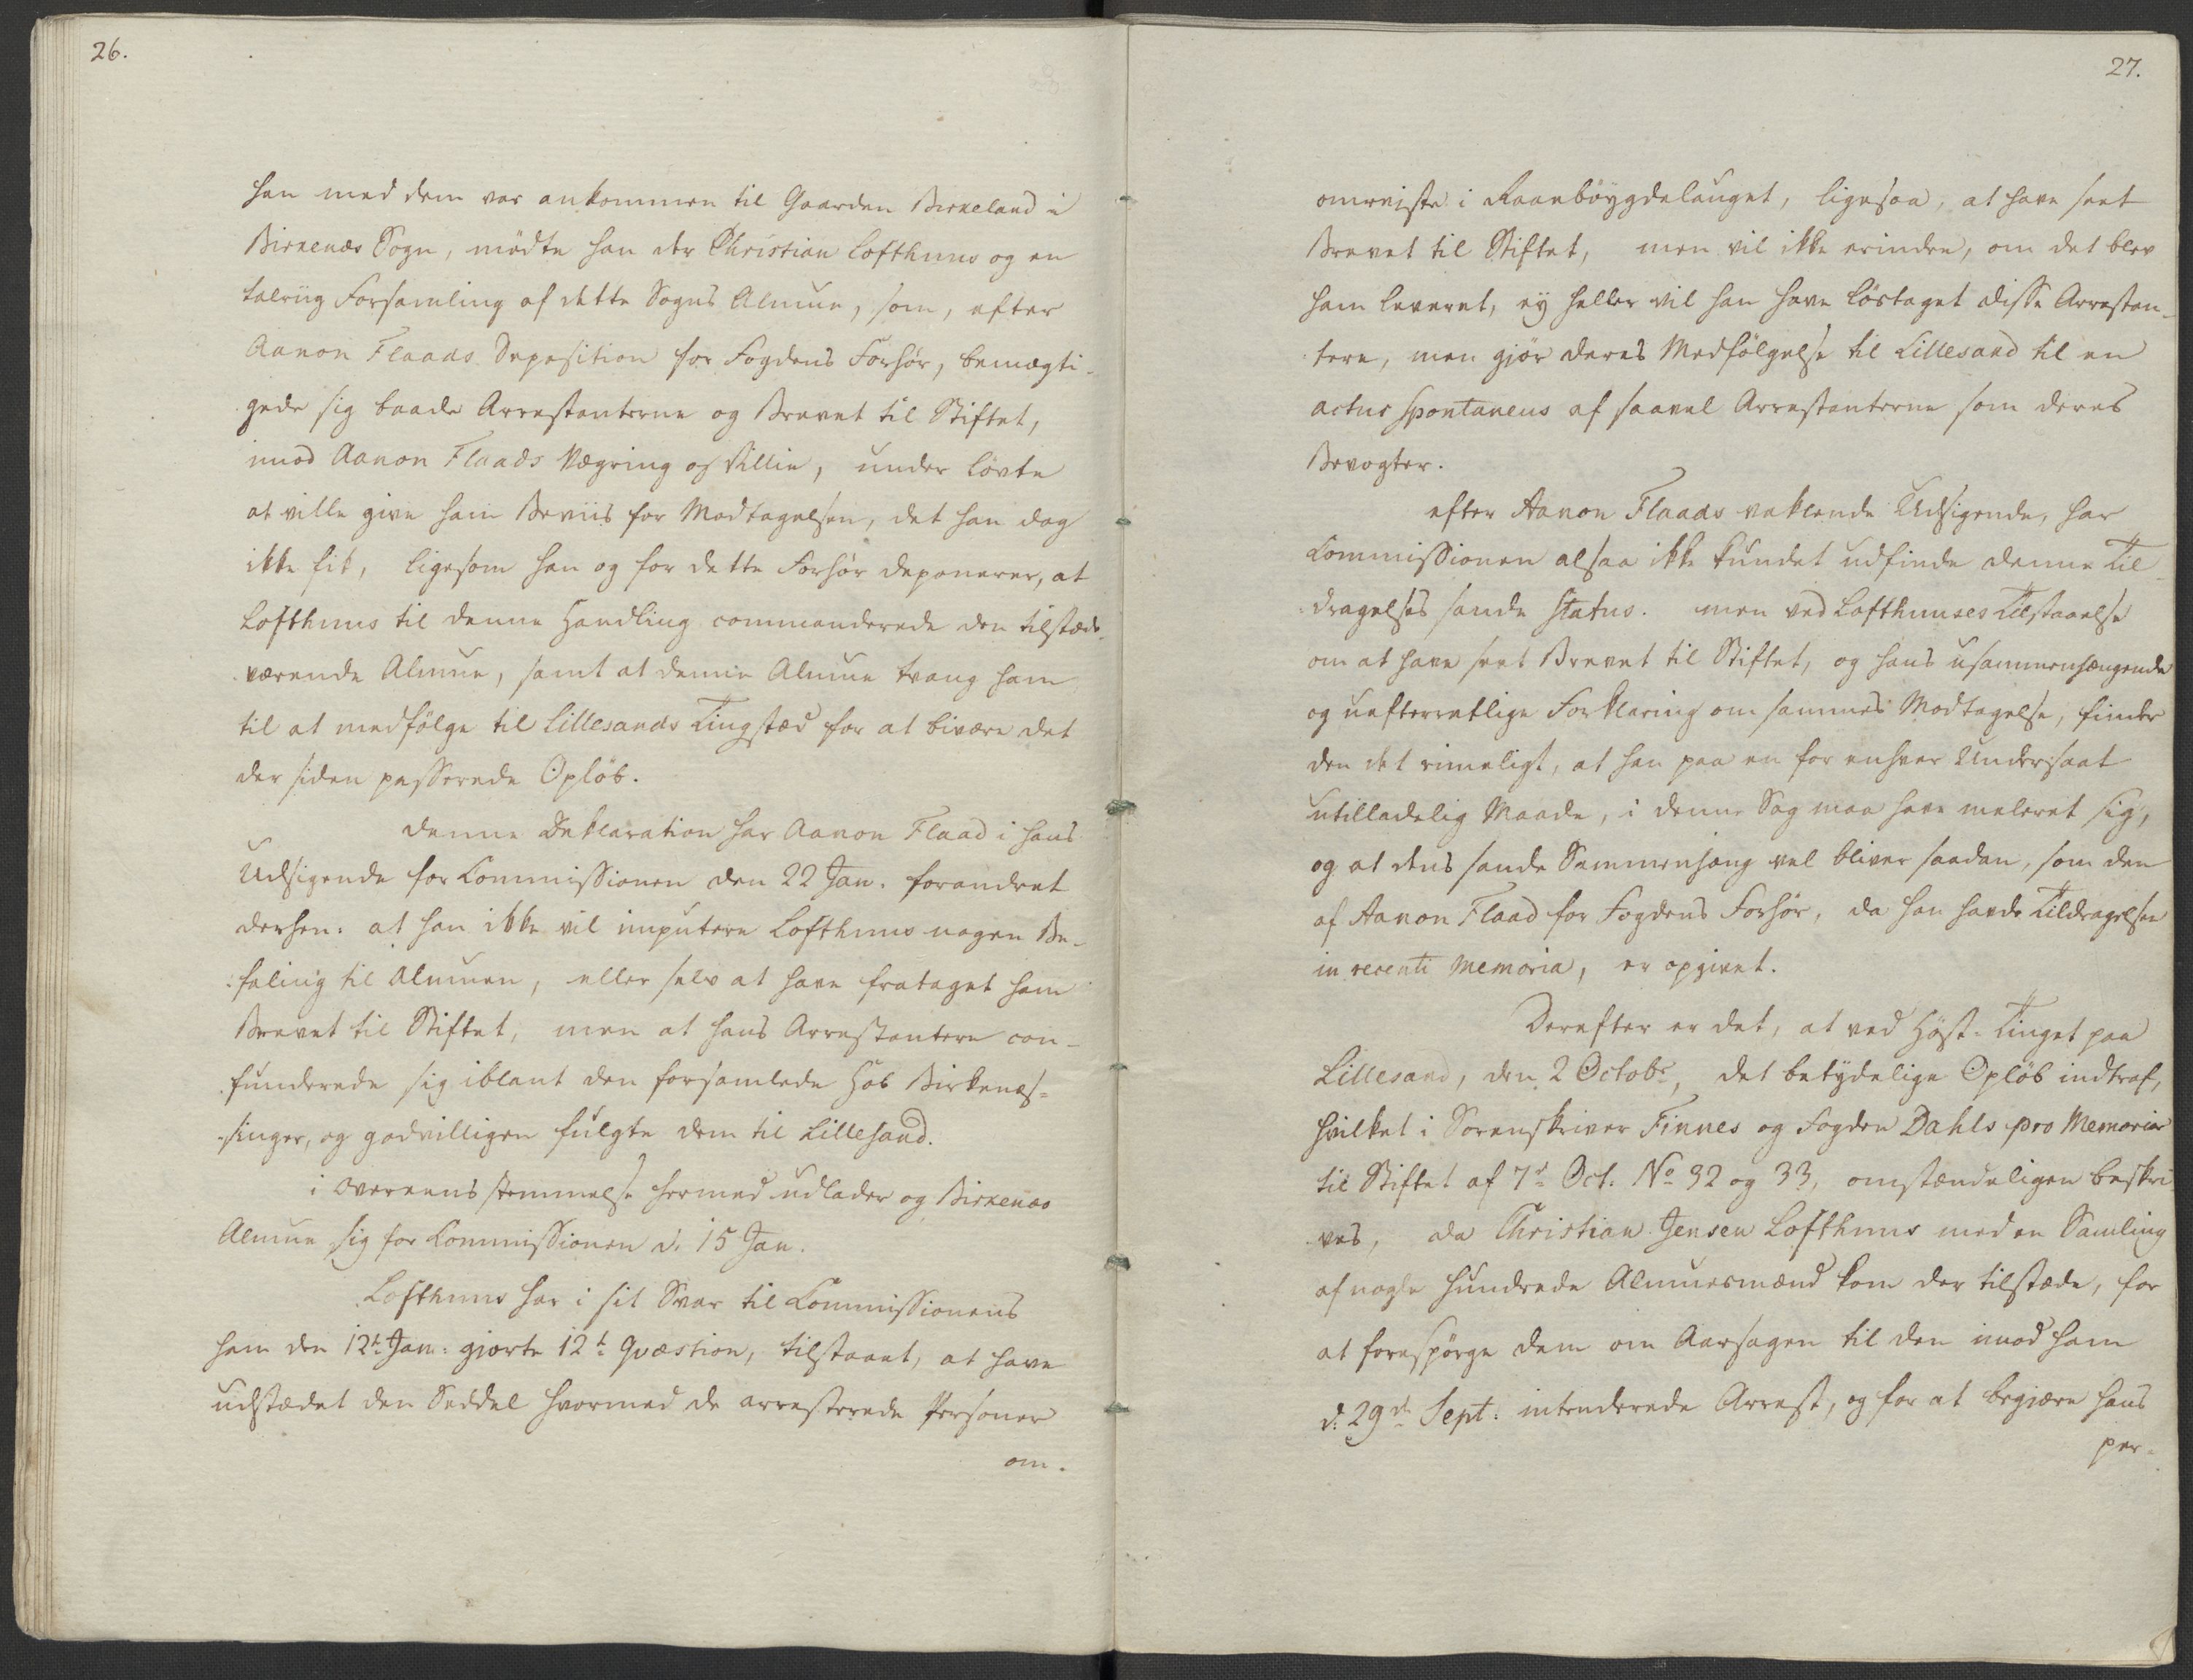 26.
han med dem var ankommen til Gaarden Birkeland i
Birkenæs Sogn, mödte han der Christian Lofthuus og en
talriig Forsamling af dette Sogns Almue, som, efter
Aanon Flaads Deposition for Fogdens Forhör, bemægti-
gede sig baade Arrestanterne og Brevet til Stiftet,
imod Aanon Flaads Vægring og Villie, under Lövte
at ville give ham Beviis for Modtagelsen, det han dog
ikke fik, ligesom han og for dette Forhör deponerer, at
Lofthuus til denne Handling commanderede den tilstæde-
værende Almue, samt at denne Almue tvang ham
til at medfölge til Lillesands Tingstæd for at bivære det
der siden passerede Oplöb.
denne Declaration har Aanon Flaad i hans
Udsigende for Commissionen den 22 Jan. forandret
derhen: at han ikke vil imputere Lofthuus nogen Be-
faling til Almuen, eller selv at have frataget ham
Brevet til Stiftet, men at hans Arrestantere con-
funderede sig iblant den forsamlede Hob Birkenæs-
singer, og godvilligen fulgte dem til Lillesand.
i Overeensstemmelse hermed udlader og Birkenæs
Almue sig for Commissionen d. 15 Jan.
Lofthuus har i sit Svar til Commissionens
ham den 12t Jan: giorte 12t Qvæstion, tilstaaet, at have
udstædet den Seddel hvormed de arresterede Personer
om-
27.
omreiste i Raanböygdelauget, ligesaa, at have seet
Brevet til Stiftet, men vil ikke erindre, om det blev
ham leveret, ey heller vil han have löstaget disse Arrestan-
tere, men gjör deres Medfölgelse til Lillesand til en
actus spontaneus af saavel Arrestanterne som deres
Bevogter.
efter Aanon Flaads vaklende Udsigende, har
Commissionen altsaa ikke kundet udfinde denne Til-
dragelses sande Status. men ved Lofthuuses Tilstaaelse
om at have seet Brevet til Stiftet, og hans usammenhængende
og uefterretlige Forklaring om sammes Modtagelse, finder
den det rimeligt, at han paa en for enhver Undersaat
utilladelig Maade, i denne Sag maa have meleret sig,
og at dens sande Sammenhæng vel bliver saadan, som den
af Aanon Flaad for Fogdens Forhör, da han havde Tildragelsen
in recenti memoria, er opgivet.
Derefter er det, at ved Höst-Tinget paa
Lillesand, den 2 Octobr, det betydelige Oplöb indtraf,
hvilket i Sorenskriver Finnes og Fogden Dahls pro Memoria
til Stiftet af 7d Oct. No 32 og 33, omstændeligen beskri-
ves, da Christian Jensen Lofthuus med en Samling
af nogle hundrede Almuesmænd kom der tilstæde, for
at forespörge dem om Aarsagen til den imod ham
d. 29de Sept: intenderede Arrest, og for at begiære hans
per-